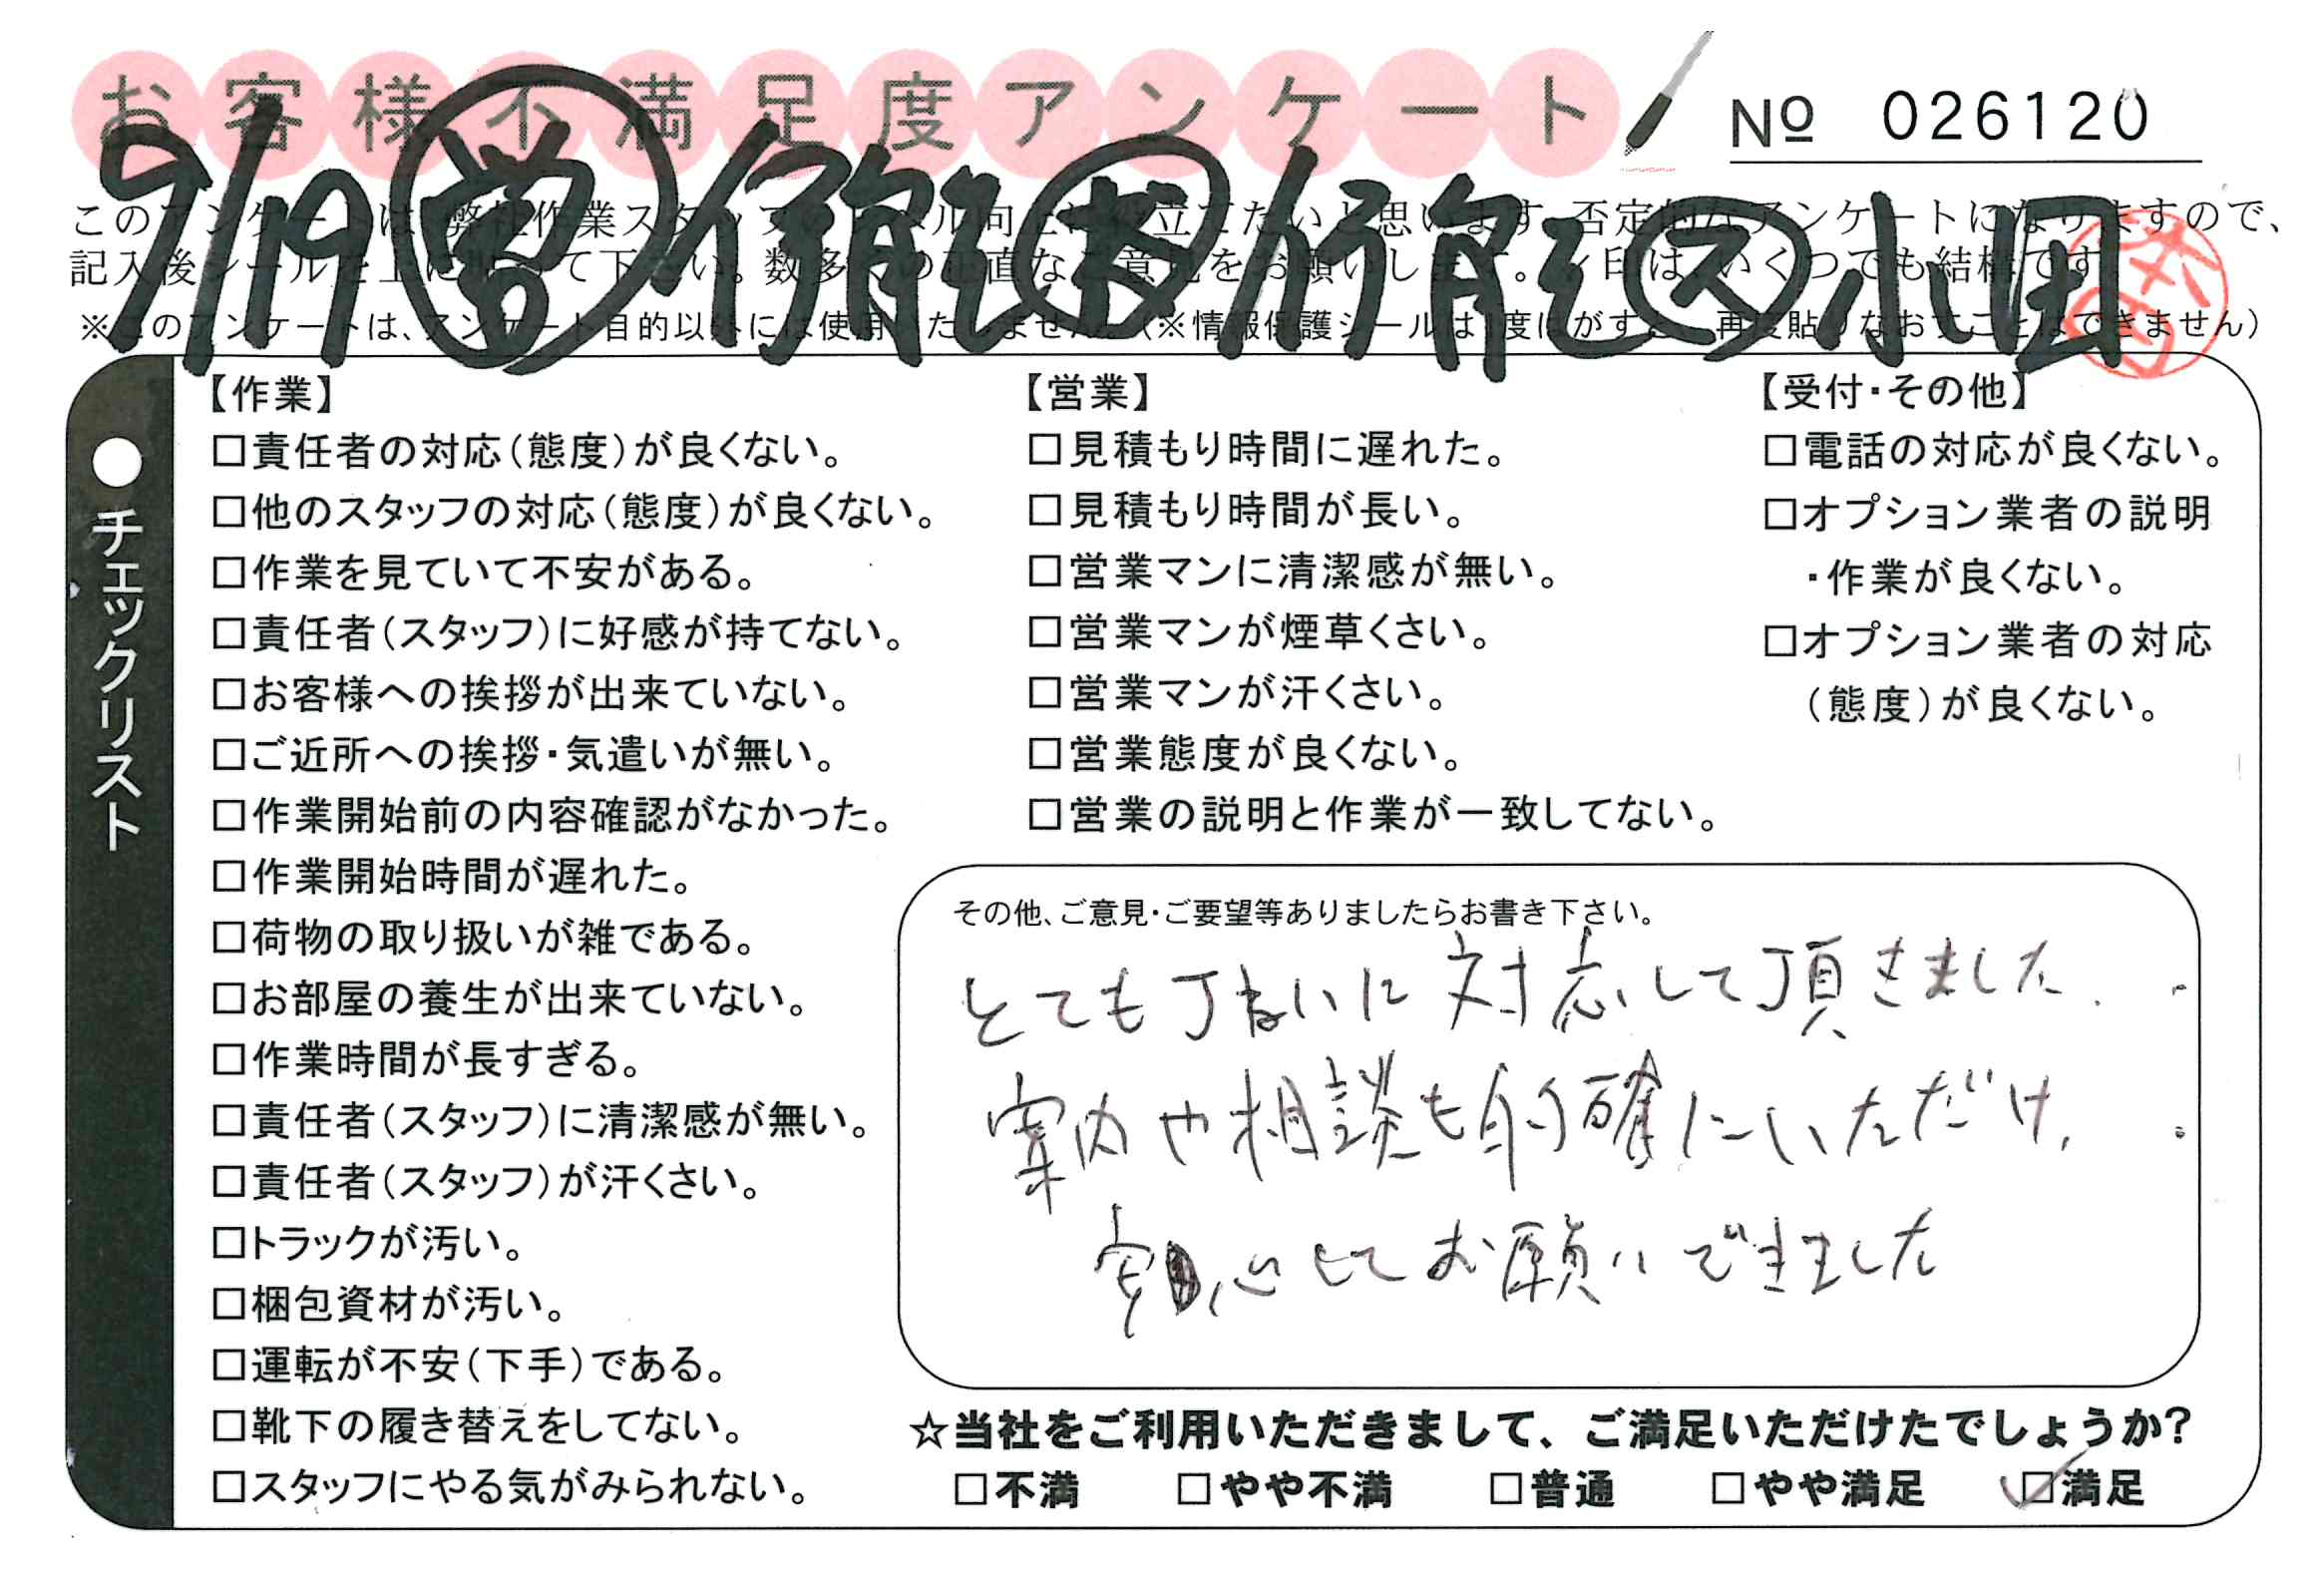 お客様不満足度アンケート
№ 026120
9/19 営 伊能 ス 小田
このアンケートは、弊社作業スタッフのレベル向上に役立てたいと思います。否定的なアンケートになりますので、
記入後シールを上に貼って下さい。数多くの正直なご意見をお願いします。✓印は、いくつでも結構です。
※このアンケートは、アンケート目的以外には使用いたしません。(※情報保護シールは1度はがすと、再度貼りなおすことはできません)
●チェックリスト
【作業】
□責任者の対応(態度)が良くない。
□他のスタッフの対応(態度)が良くない。
□作業を見ていて不安がある。
□責任者(スタッフ)に好感が持てない。
□お客様への挨拶が出来ていない。
□ご近所への挨拶・気遣いが無い。
□作業開始前の内容確認がなかった。
□作業開始時間が遅れた。
□荷物の取り扱いが雑である。
□お部屋の養生が出来ていない。
□作業時間が長すぎる。
□責任者(スタッフ)に清潔感が無い。
□責任者(スタッフ)が汗くさい。
□トラックが汚い。
□梱包資材が汚い。
□運転が不安(下手)である。
□靴下の履き替えをしてない。
□スタッフにやる気がみられない。
【営業】
□見積もり時間に遅れた。
□見積もり時間が長い。
□営業マンに清潔感が無い。
□営業マンが煙草くさい。
□営業マンが汗くさい。
□営業態度が良くない。
□営業の説明と作業が一致してない。
【受付・その他】
□電話の対応が良くない。
□オプション業者の説明
・作業が良くない。
□オプション業者の対応
(態度)が良くない。
その他、ご意見・ご要望等ありましたらお書き下さい。
とても丁ねいに対応して頂きました。
案内や相談も的確にいただけ、
安心してお願いできました
☆当社をご利用いただきまして、ご満足いただけたでしょうか?
□不満 □やや不満 □普通 □やや満足 ☑満足